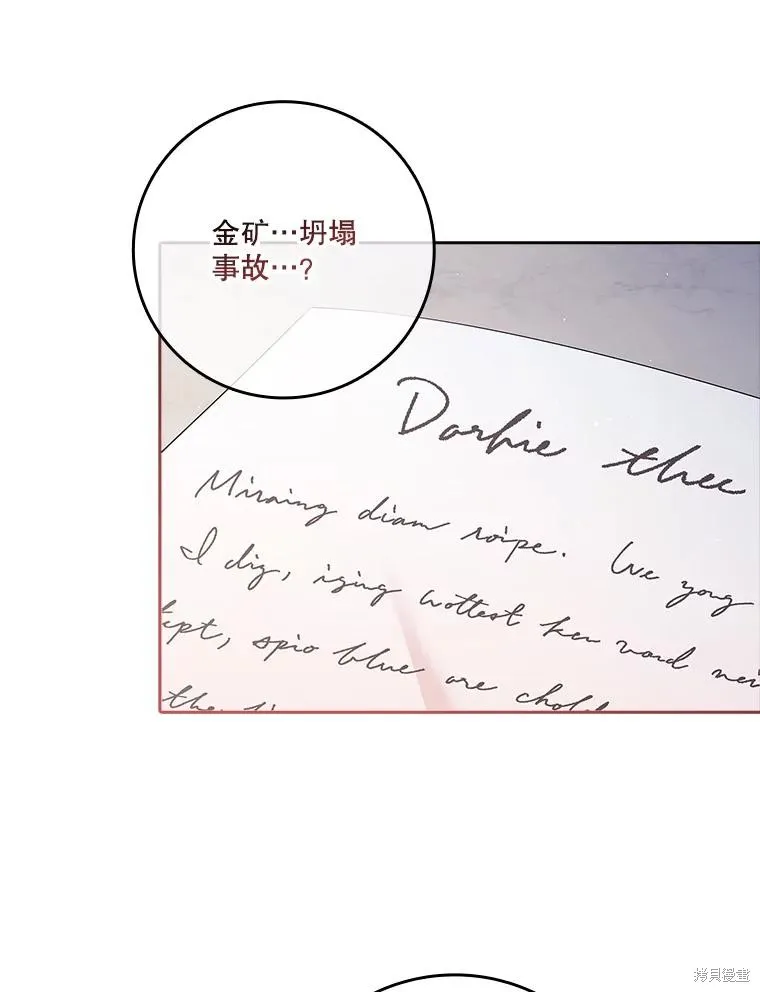 金矿…坍塌
事故…?
Darhie thee
Miraing diam roipe. We yong
I dig, iging wottest ken vard nei
kept, spio blue are chold
the
拷貝漫畫